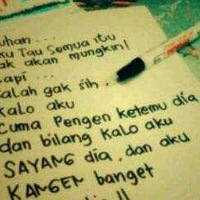 uhan...
ku Tau Semua itu
ak akan mungkin!
api...
alah gak sih,
Kalo aku
Cuma Pengen ketemu dia
dan bilang Kalo aku
SAYANG dia, dan aku
KANGEN banget